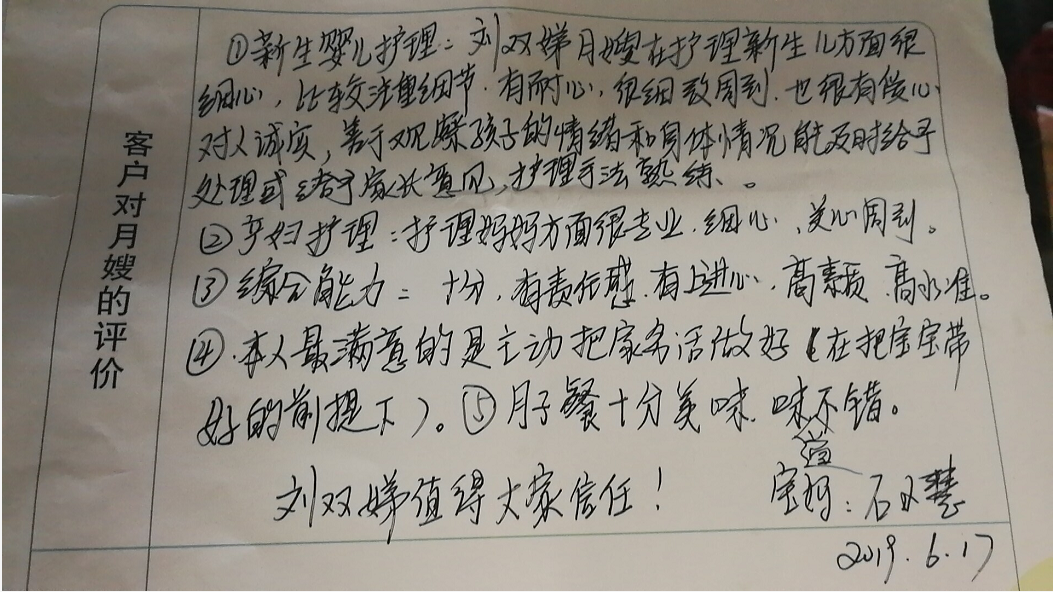 客户对月嫂的评价
①新生婴儿护理：刘双娣月嫂在护理新生儿方面很
细心，比较注重细节.有耐心，很细致周到.也很有爱心
对人诚实，善于观察孩子的情绪和身体情况能及时给予
处理或给予家长意见，护理手法熟练、。
②产妇护理：护理妈妈方面很专业.细心、关心周到。
③综合能力：十分，有责任感.有上进心，高素质.高水准。
④.本人最满意的是主动把家务活做好（在把宝宝带
好的前提下）。⑤月子餐十分美味.味不错。
刘双娣值得大家信任！
宝妈：石文慧
2019.6.17